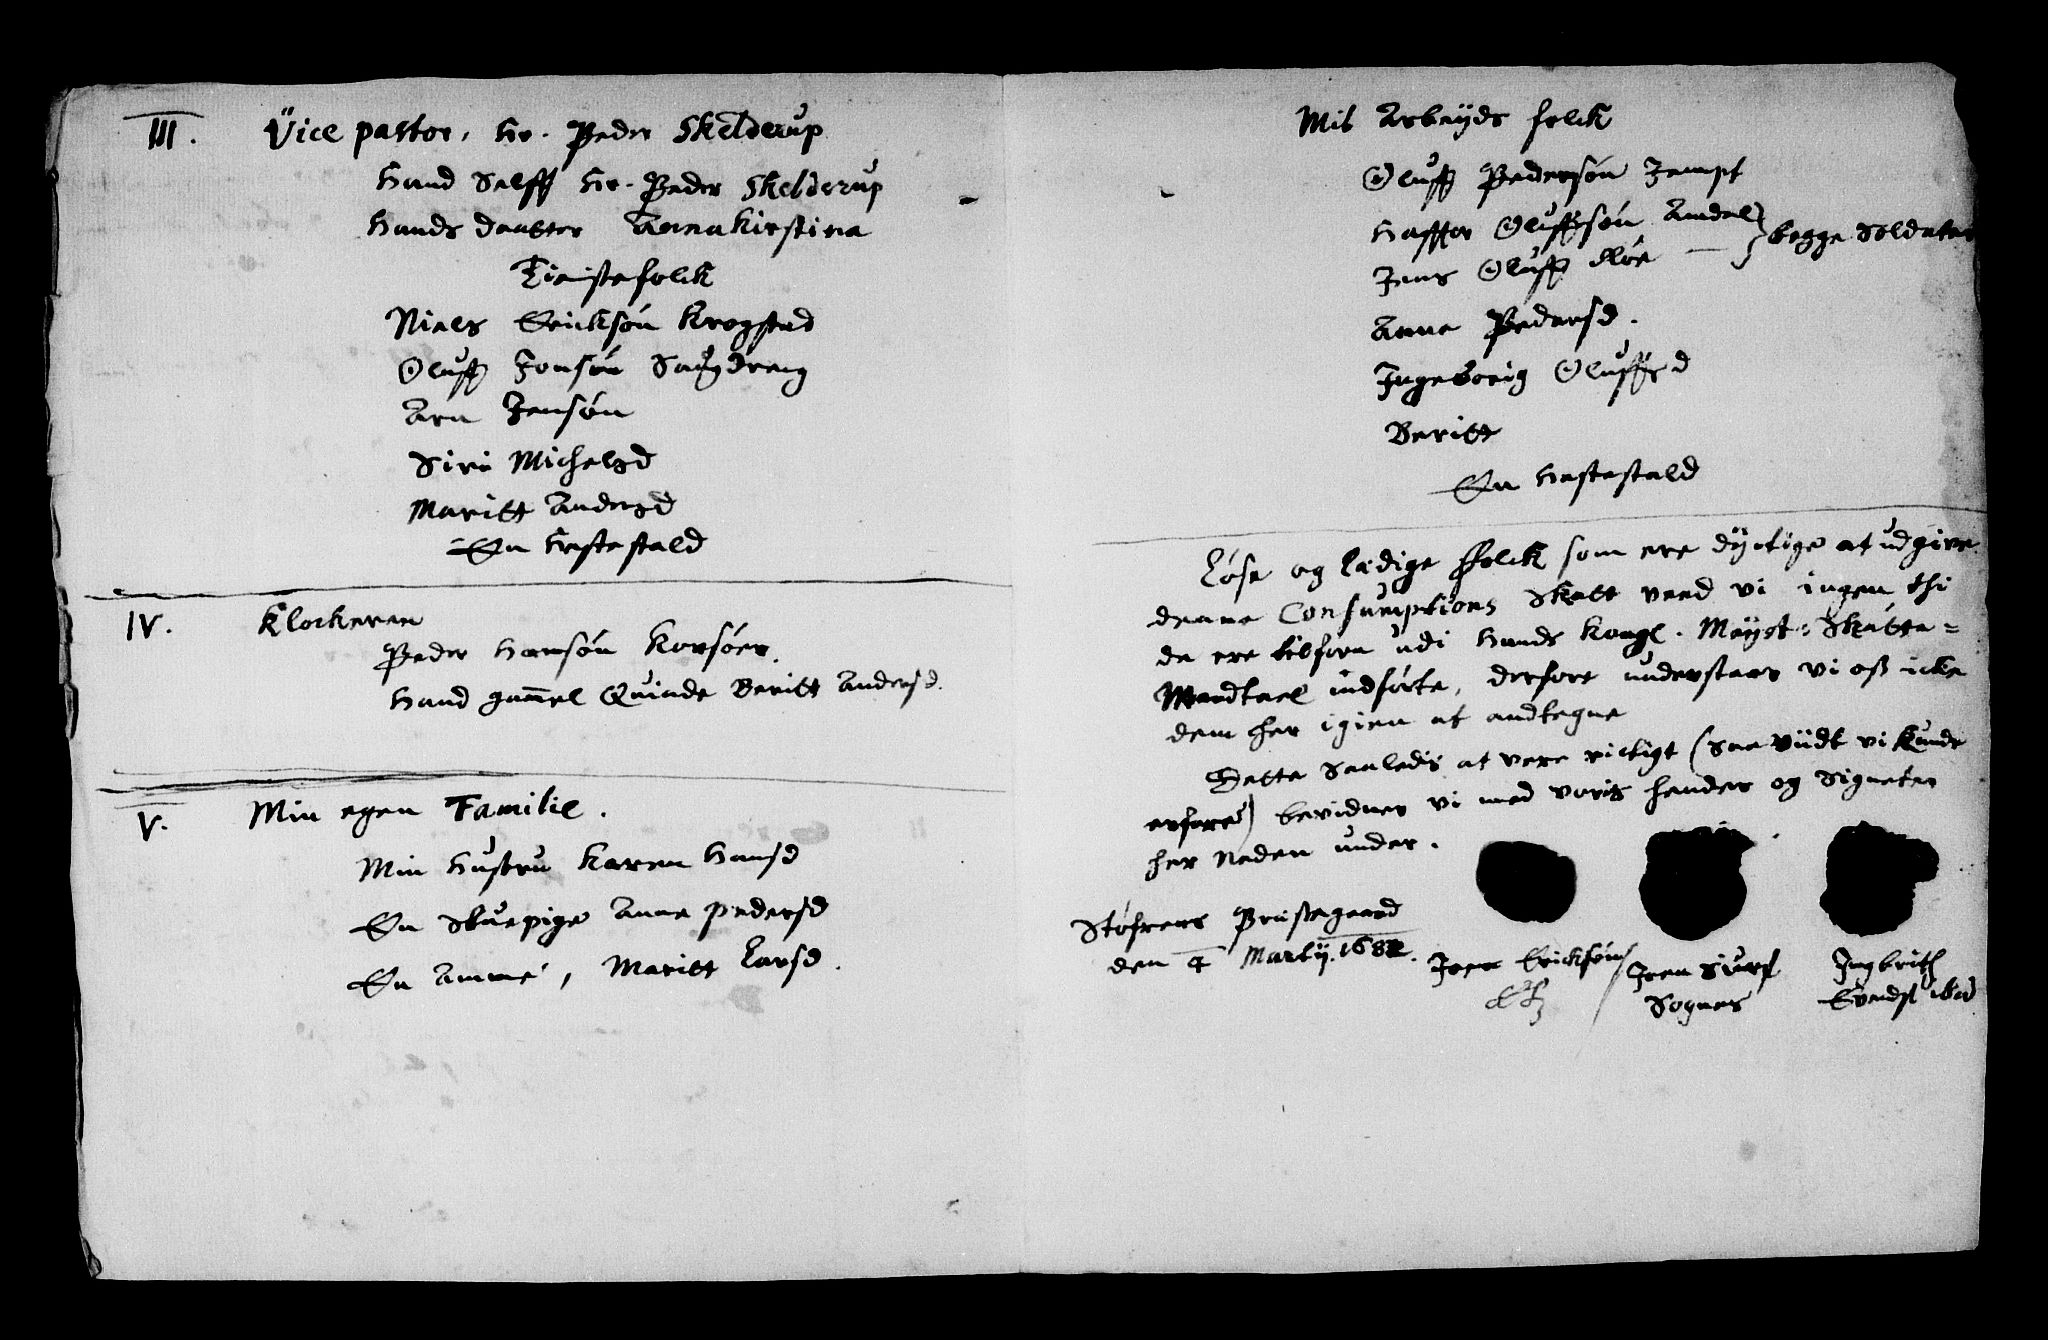 III. Vice pastor, Hr. Peder Skelderup
Hand Selff Hr. Peder Skelderup
Hands daatter Annakirstina
Tienistefolck
Niels Erichsøn Krogstad
Oluff Jonsøn Saugdreng
Arn Jensøn
Siri Michelsd
Maritt Andersd
En Hestestald
IV. Klockeren
Peder Hansøn Korsøer.
Hand gammel Quinde Beritt Andersd.
V. Min egen Familie.
Min Hustru Karen Hansd
En Stuepige Anne pedersd
En Amme, Maritt Larsd.
Mit Arbeyds folck
Oluff Pedersøn Jempt
Haffor Oluffsøn Amdal
Jens Oluff begge Soldater
Anne Pedersd.
Ingeborig Oluffsd
Beritt
En Hestestald
Løse og ledige folck som ere dyctige at udgive
denne Consumptions Skatt veed vi ingen thi
de ere tilforn udi Hands Kongl. Mayst: Skatte=
Mandtael indførte, derfore understaar vi oss icke
dem her igien at andtegne
Dette Saaledis at vere rictigt (Saa viidt vi kunde
erfare) bevidner vi med voris hender og Signeter
her neden under.
Støfrens Præstegaard
den 4 Martij. 1682.
Joen Erichsøn
Joen Siurs
Sognes
Ingbrith
Svends ibid